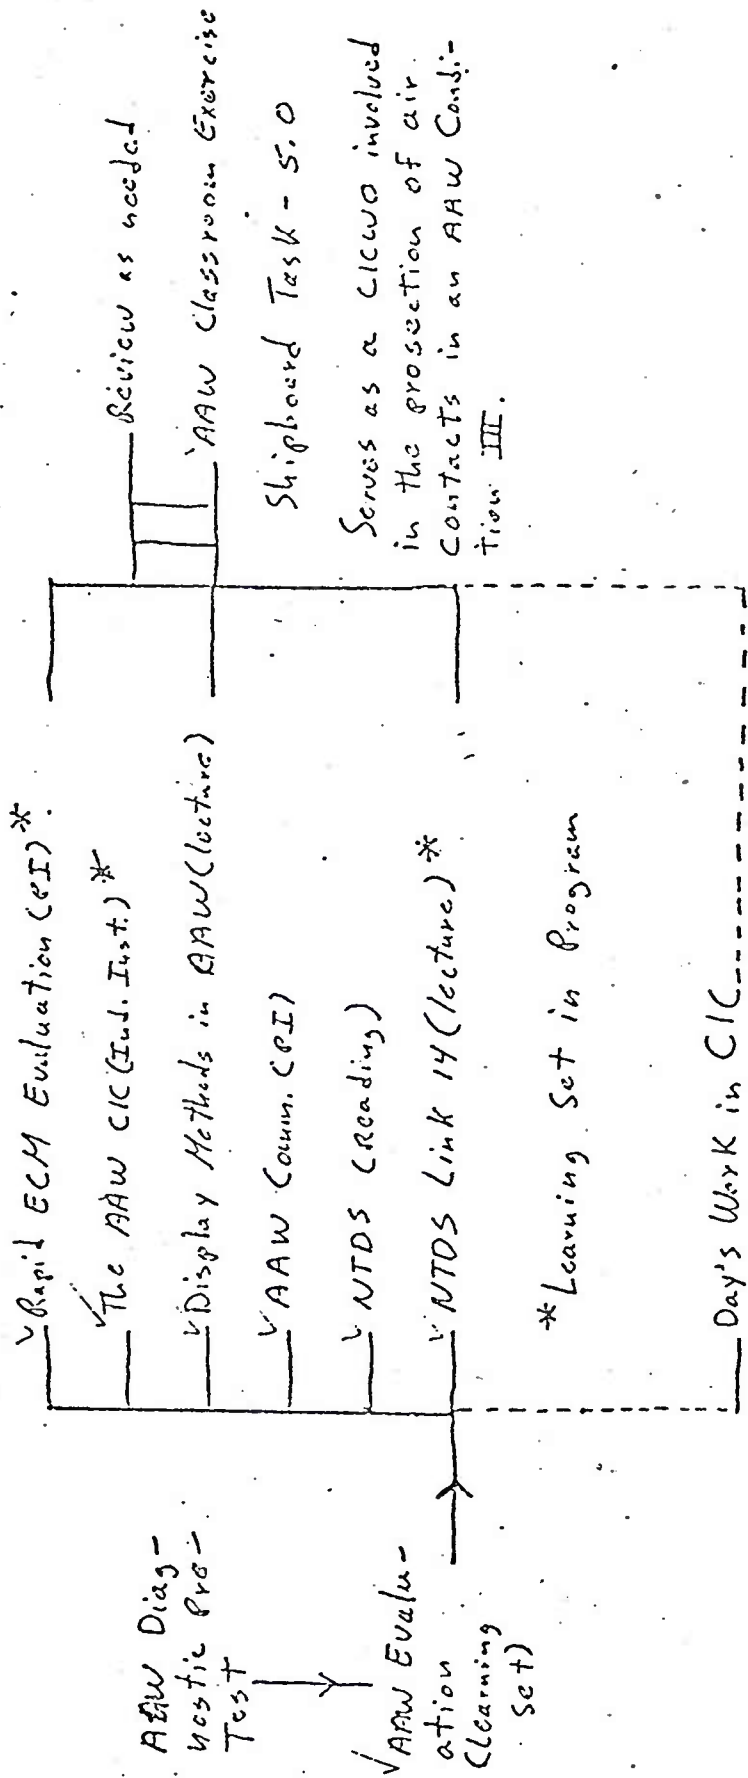 AAW Diag-
nostic Pre-
Test
✓AAW Evalu-
ation
(learning
set)
✓Rapid ECM Evaluation (PI)*
✓The AAW CIC (Ind. Inst.)*
✓Display Methods in AAW (lecture)
✓AAW Comm. (PI)
✓NTDS (Reading)
✓NTDS Link 14 (lecture)*
*Learning Set in Program
Day's Work in CIC
Review as needed
AAW Classroom Exercise
Shipboard Task - 5.0
Serves as a CICWO involved
in the prosection of air
Contacts in an AAW Condi-
tion III.